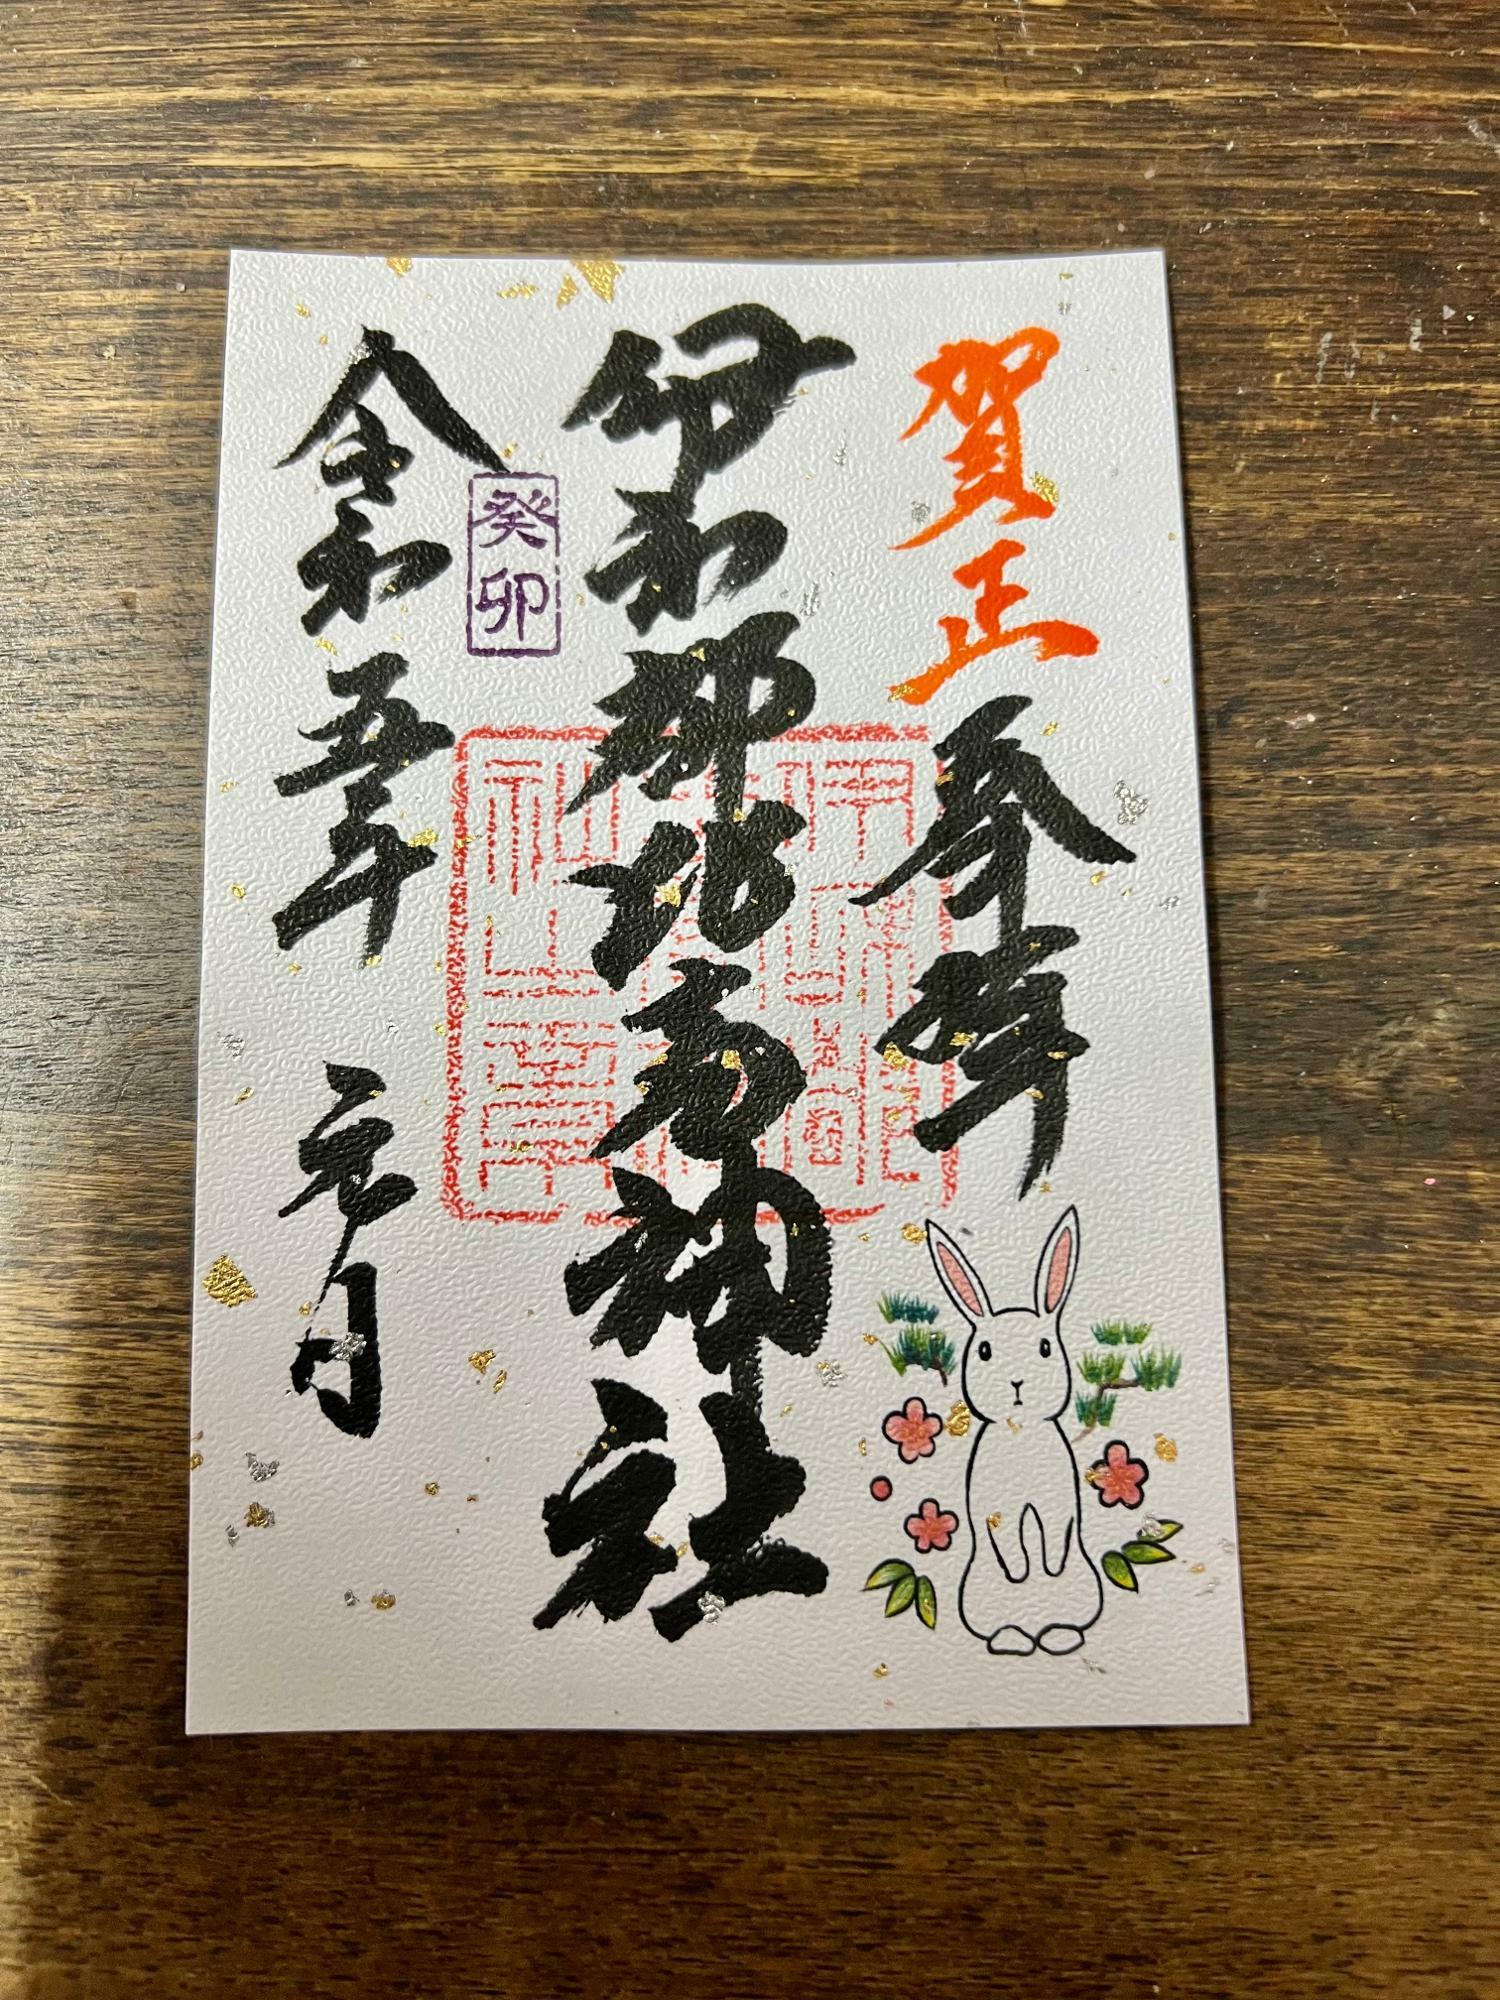 賀正
奉拝
伊和都比売神社
癸卯
令和五年 元月